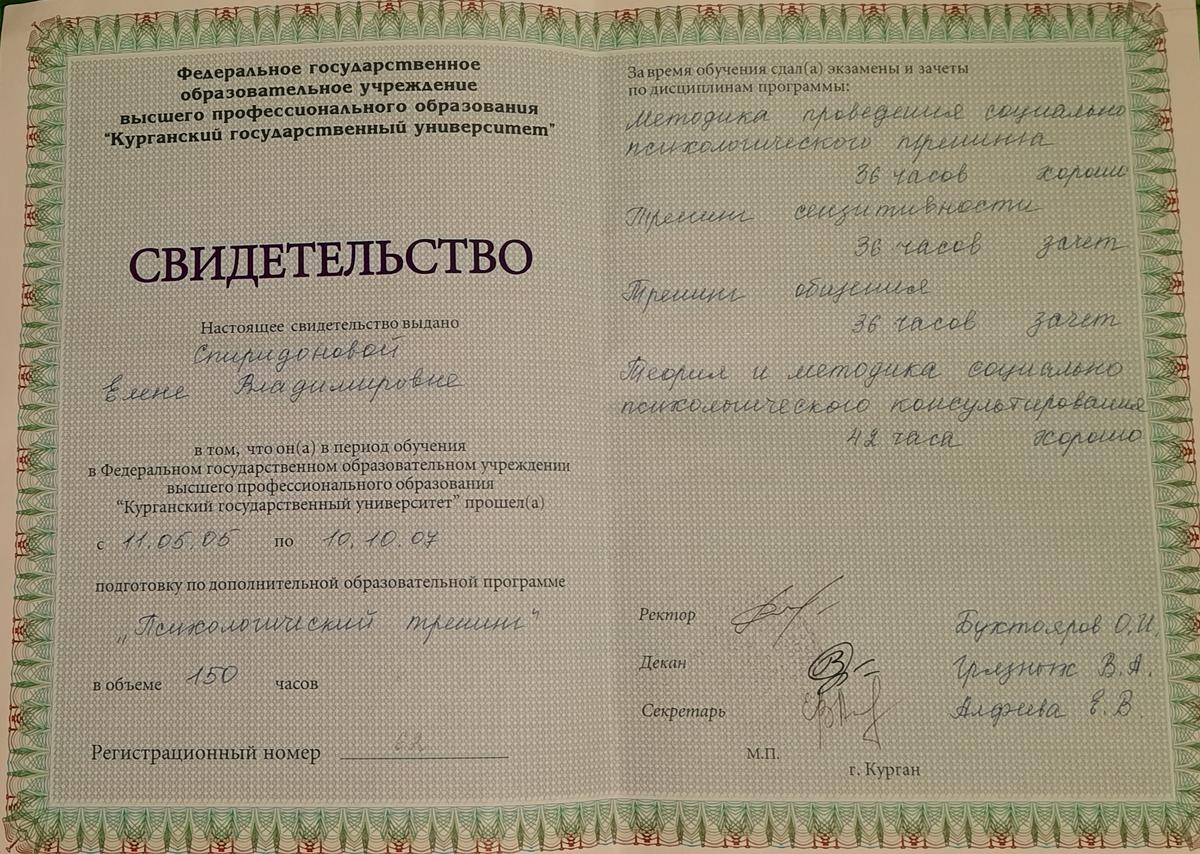 Федеральное государственное
образовательное учреждение
высшего профессионального образования
"Курганский государственный университет"
СВИДЕТЕЛЬСТВО
Настоящее свидетельство выдано
Спиридоновой
Елене Владимировне
в том, что он(а) в период обучения
в Федеральном государственном образовательном учреждении
высшего профессионального образования
“Курганский государственный университет” прошел(а)
с 11.05.05 по 10.10.07
подготовку по дополнительной образовательной программе
„Психологический тренинг“
в объеме 150 часов
Регистрационный номер
За время обучения сдал(а) экзамены и зачеты
по дисциплинам программы:
Методика проведения социально
психологического тренинга
36 часов хорошо
Тренинг сензитивности
36 часов зачет
Тренинг общения
36 часов зачет
Теория и методика социально
психологического консультирования
42 часа хорошо
Ректор Бухтояров О.И.
Декан Грязных В.А.
Секретарь Алфеева Е.В
М.П.
г. Курган